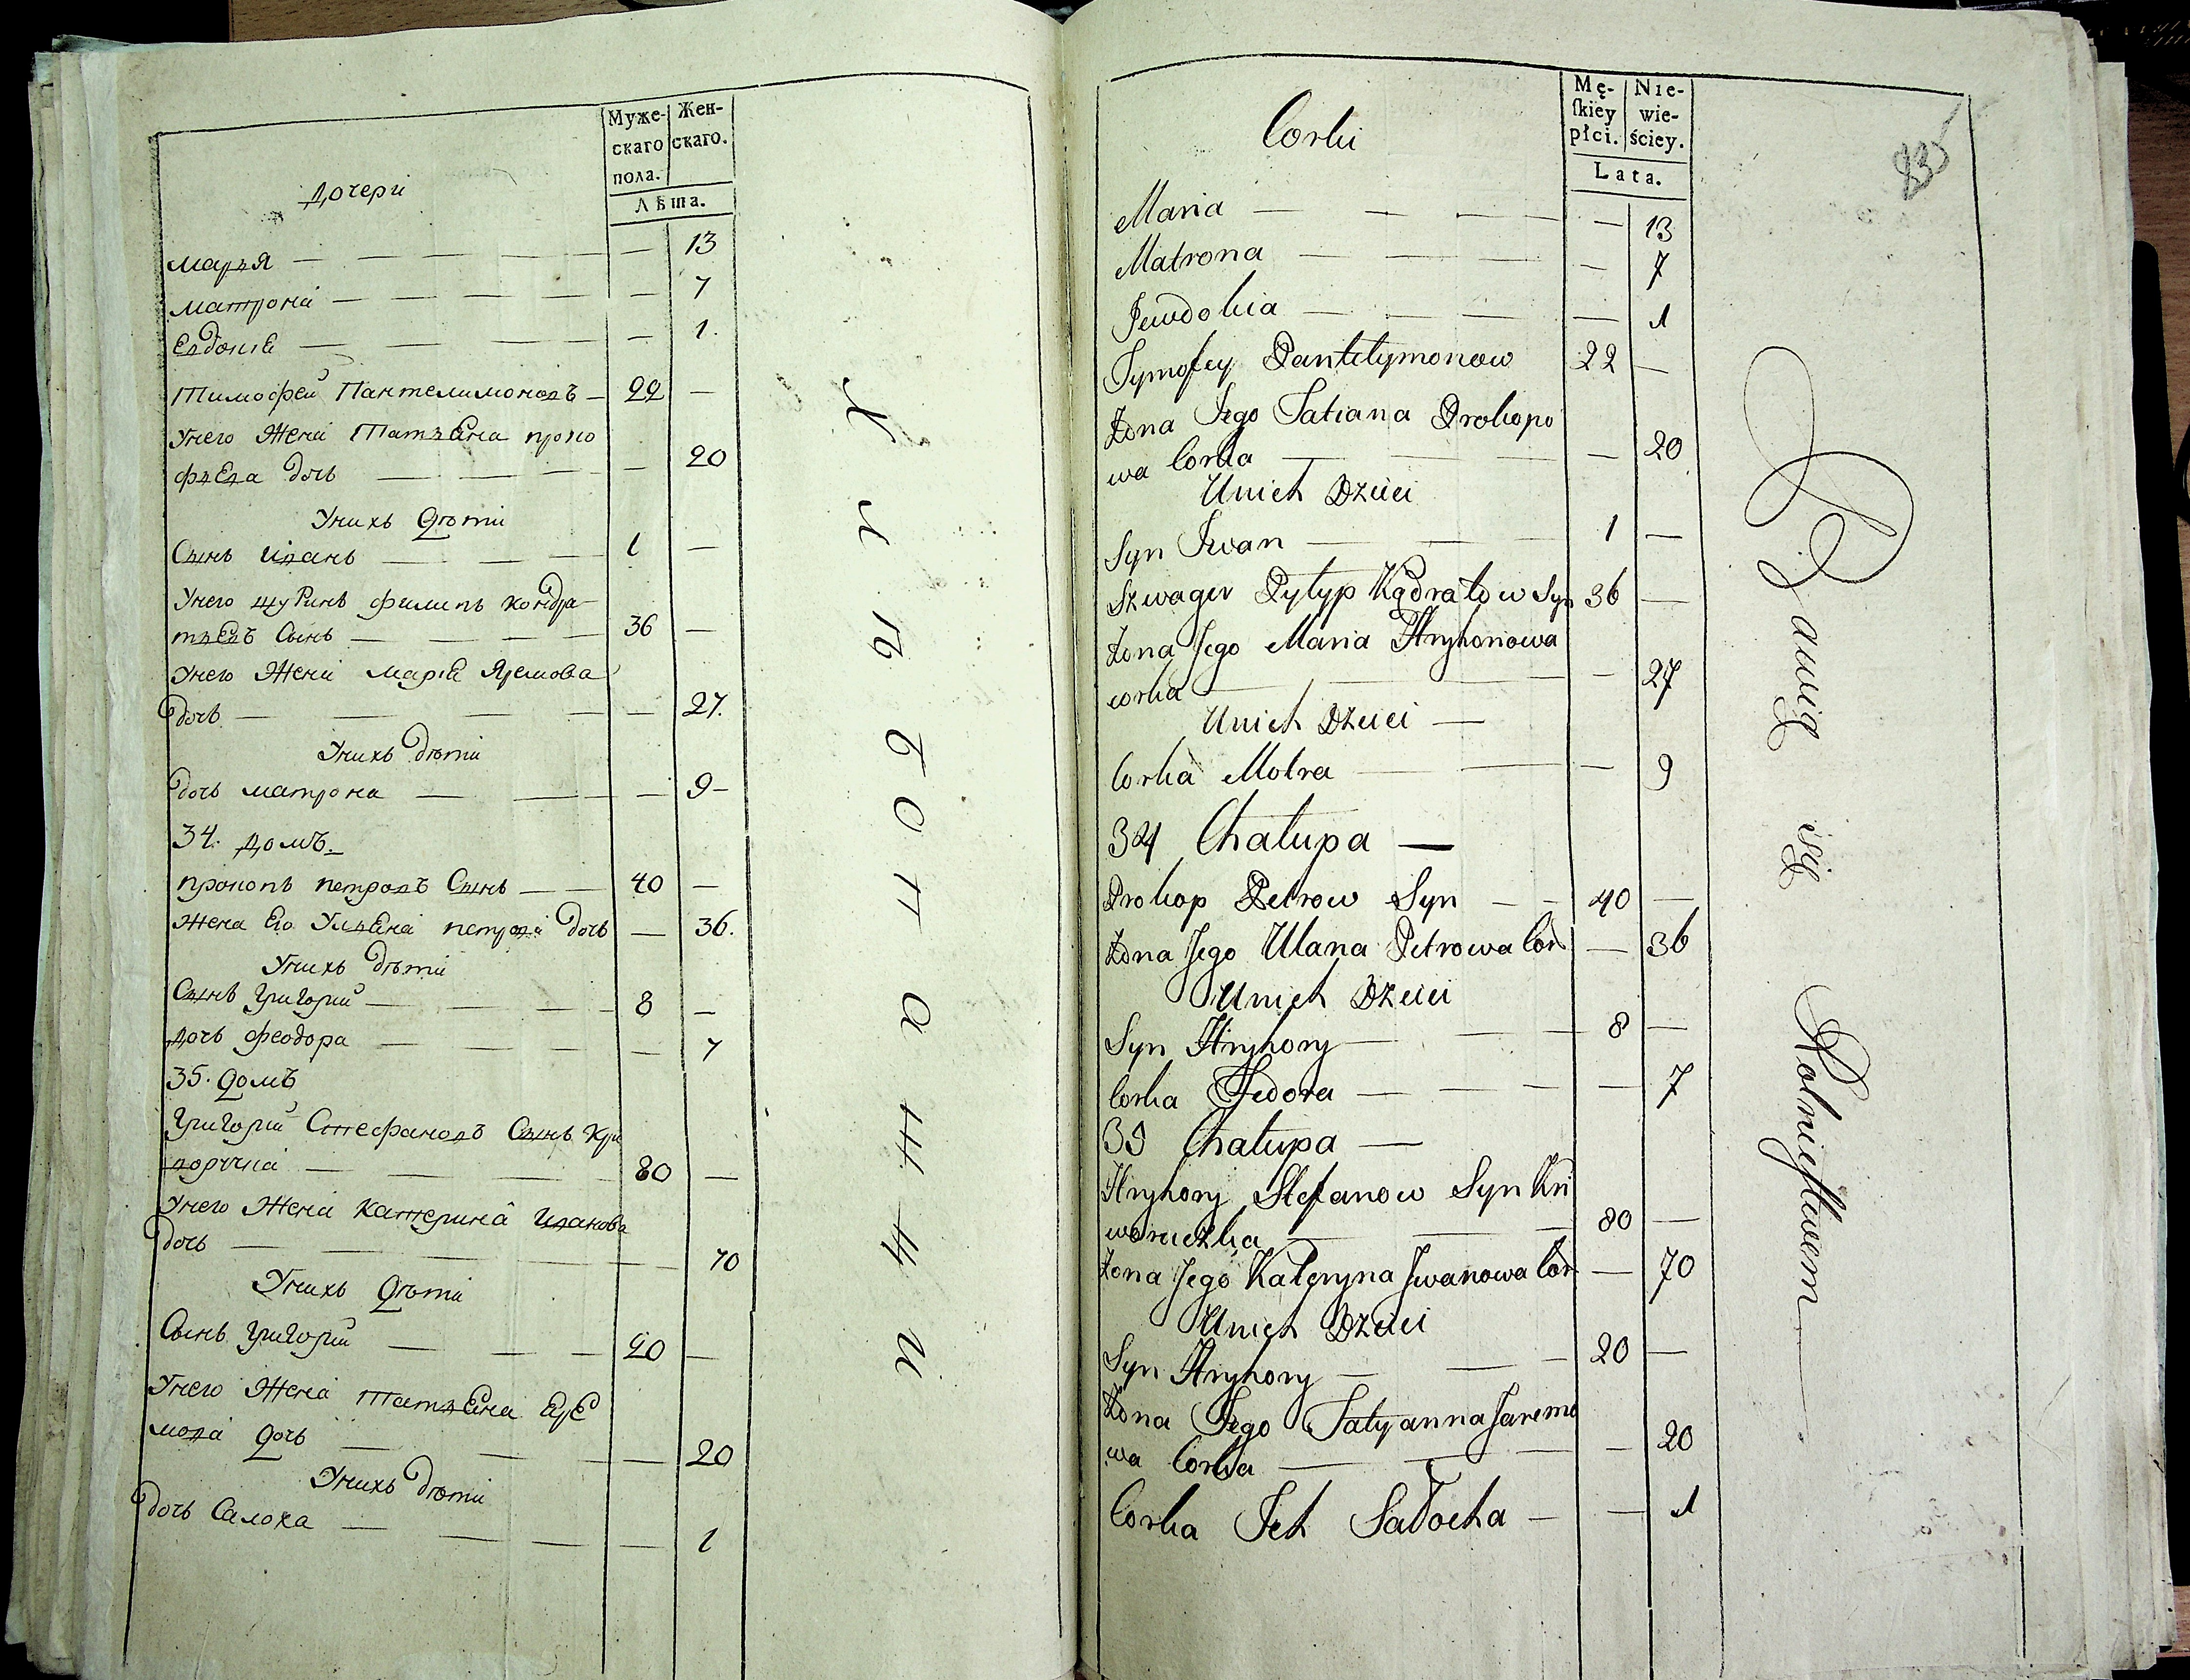 Муже-
скаго
пола.
Жен-
скаго.
Лѣта.
Дочери
Марья — — 13
Матрона — — 7
Евдокіа — — 1.
Тимофей Пантелимоновъ — 22 —
Унего жена Татьяна проко
фьева дочь — — 20
Унихъ дѣти
Сынъ Иванъ — 1 —
Унего щуринъ Филипъ Кондра
тьевъ Сынъ — 36 —
Унего жена Маріа Яремова
дочь — — 27.
Унихъ дѣти
дочь Матрона — — 9 —
34. домъ.
Прокопъ петровъ Сынъ — 40 —
Жена Его Ульяна петрова дочь — 36.
Унихъ дѣти
Сынъ Григорий — 8 —
дочь Феодора — — 7
35. домъ
Григорий Стефановъ Сынъ Кри
воручка — 80 —
Унего жена Катерина Иванова
дочь — — 70
Унихъ дѣти
Сынъ Григорий — 20 —
Унего жена Татьяна Ере
мова дочь — — 20
Унихъ дѣти
дочь Салоха — — 1
Mę-
ſkiey
płci.
Nie-
wie-
ściey.
Lata.
Corki
Maria — — 13
Matrona — — 7
Jewdokia — — 1
Tymofey Pantelymonow 22 —
Żona Jego Tatiana Prokopo
wa Corka — — 20
Unich Dzieci
Syn Iwan — 1 —
Szwagier Pylyp Kądratow Syn 36 —
Żona Jego Maria Hryhorowa
corka — — 27
Unich Dzieci —
Corka Motra — — 9
34 Chatupa —
Prokop Petrow Syn — 40 —
Żona Jego Ulana Petrowa Cor — 36
Unich Dzieci
Syn Hryhory — 8 —
Corka Fedora — — 7
35 Chatupa —
Hryhory Stefanow Syn Kri
woruczka — 80 —
Żona Jego Kateryna Iwanowa Cor — 70
Unich Dzieci
Syn Hryhory — 20 —
Żona Jego Tatyanna Jaremo
wa Corka — — 20
Corka Ich Sałocha — — 1
Bawią się Rolnictwem